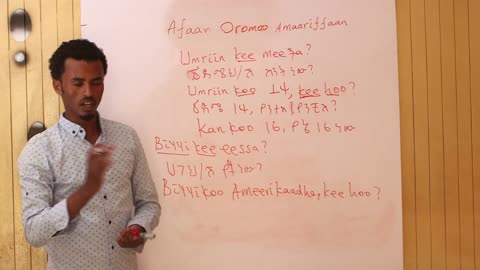 Afaan Oromoo Amaariffaan
Umriin kee meeqa?
ዕድሜህ/ሽ ስንት ነው?
Umriin koo 14, kee hoo?
ዕድሜ 14, የአንተ/
kan koo 16, የኔ 16 ነው
Biyyi kee eessa?
ሀገህ/ሽ የት ነው?
Biyyi koo Ameerikaadha, kee hoo?